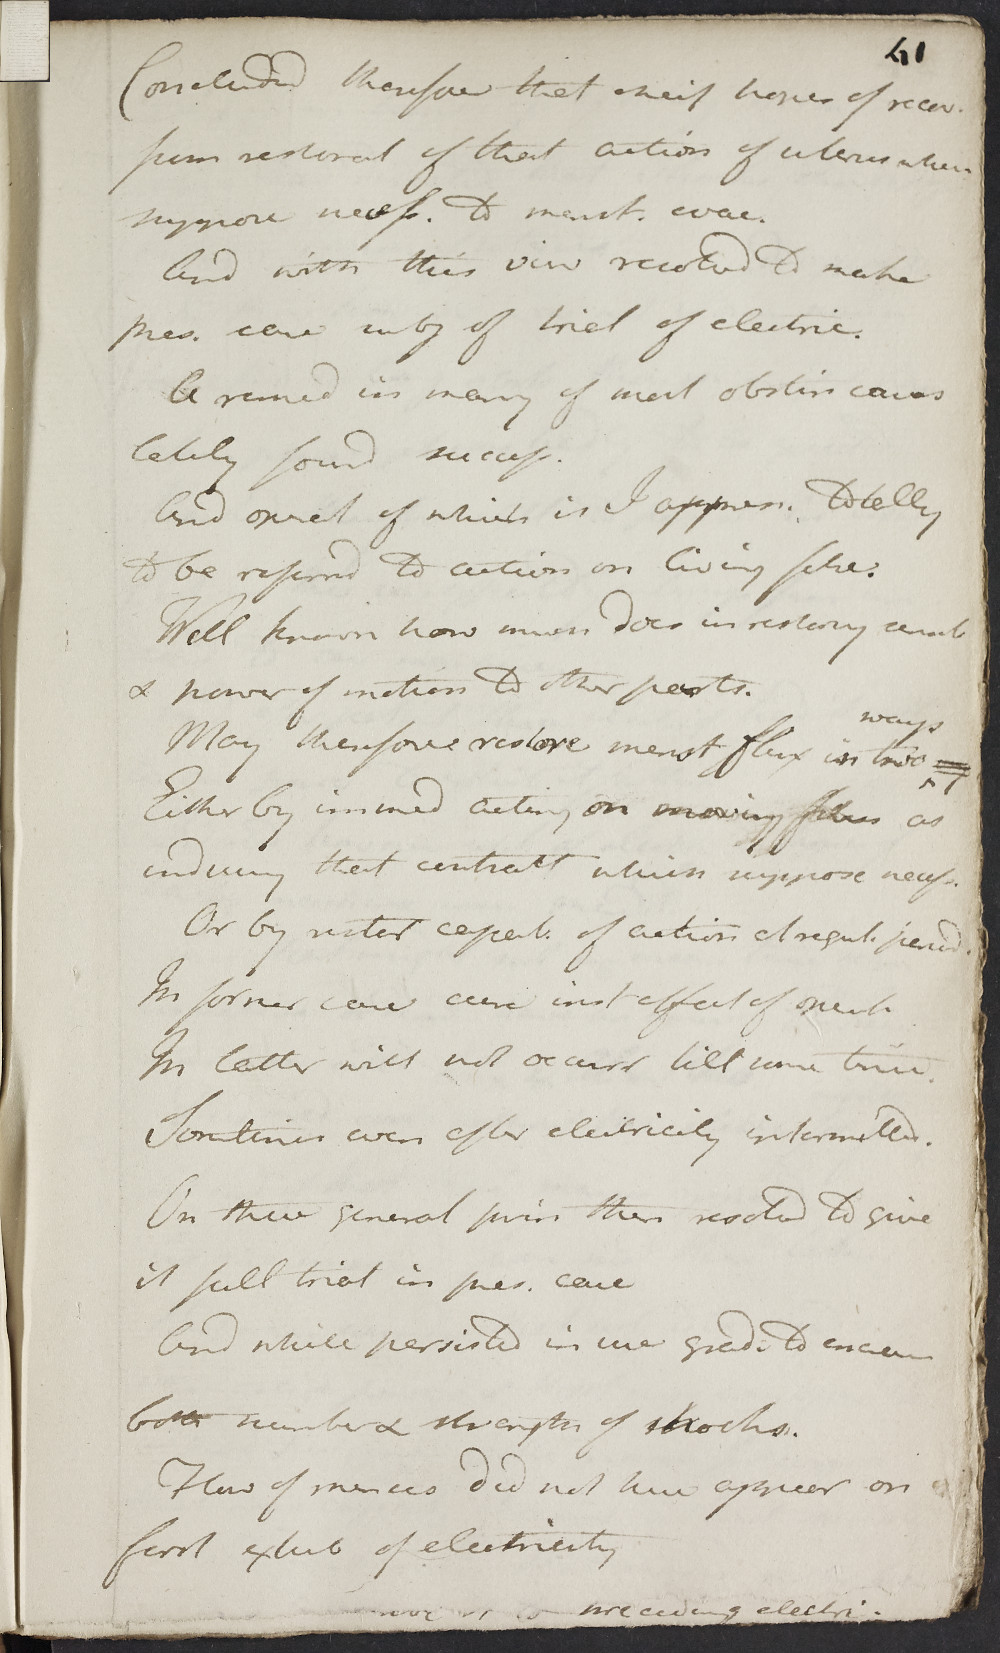 41
Concluded therefore that cheif hopes of recov.
from restorat of that action of uterus when
suppose necess. to menst. evac.
And with this view resolved to make
pres. case subj of trial of electric.
A remed in many of most obstin cases
lately found success.
And operat of which is I appreh. totally
to be referred to action on living solids.
Well known how much does in restoring sensib
& power of motion to other parts.
May therefore restore menst flux in two ways
Either by immed acting on moving fibres as
inducing that contract which suppose necess.
Or by restor capab. of action at regul. period.
In former case cure inst effect of operat.
In latter will not occurr till some time.
Sometimes even after electricity intermitted.
On these general prin then resolved to give
it full trial in pres. case
And while persisted in use grad. to encrease
both number & strength of shocks.
Flow of menses did not here appear on
first exhib of electricity
preceeding electri.